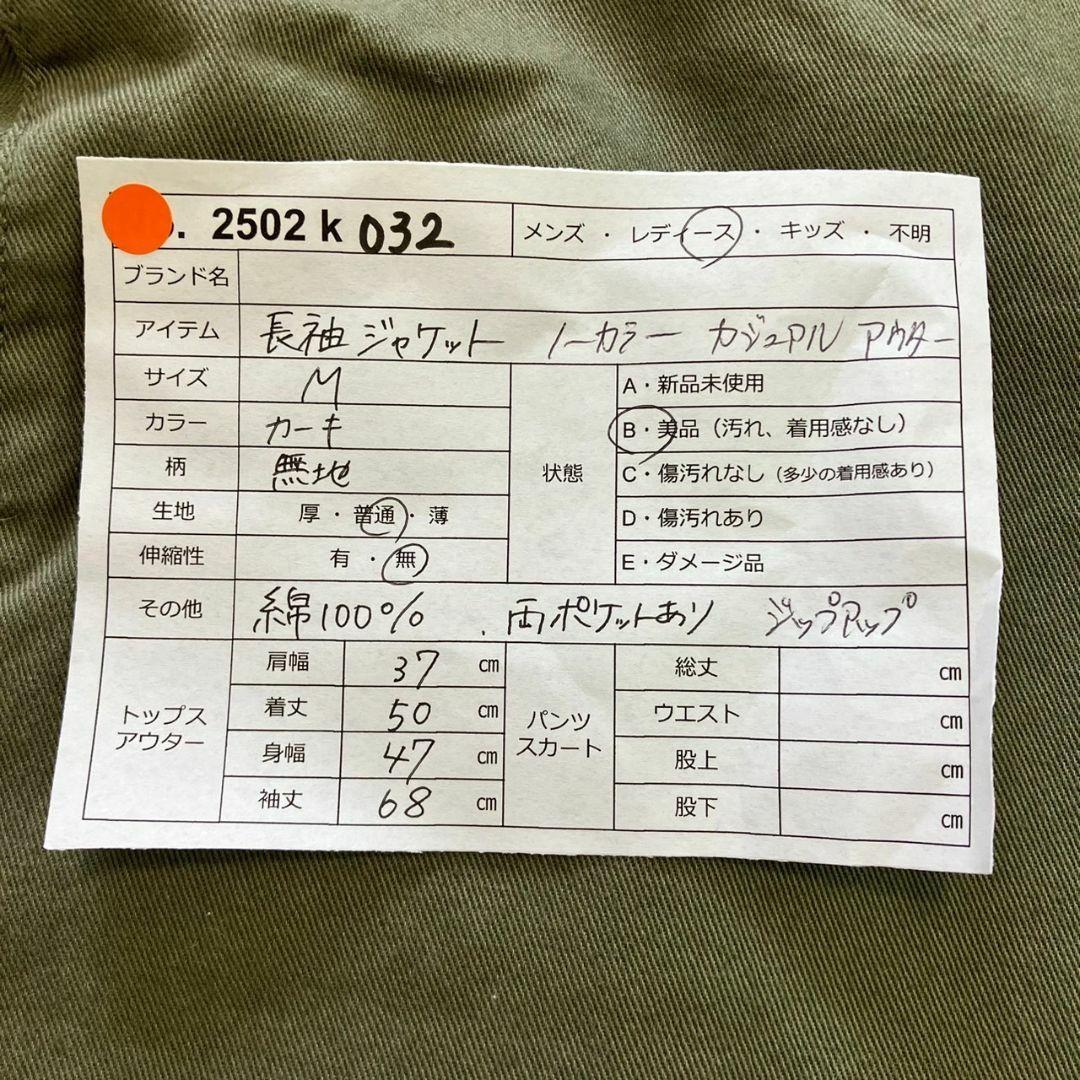 . 2502 k 032 メンズ ・ レディース ・ キッズ ・ 不明
ブランド名
アイテム 長袖 ジャケット ノーカラー カジュアル アウター
サイズ M
カラー カーキ
柄 無地
生地 厚・普通・薄
伸縮性 有 ・ 無
状態
A・新品未使用
B・美品（汚れ、着用感なし）
C・傷汚れなし（多少の着用感あり）
D・傷汚れあり
E・ダメージ品
その他 綿100% . 両ポケットあり ジップアップ
トップス
アウター
肩幅 37 cm
着丈 50 cm
身幅 47 cm
袖丈 68 cm
パンツ
スカート
総丈 cm
ウエスト cm
股上 cm
股下 cm